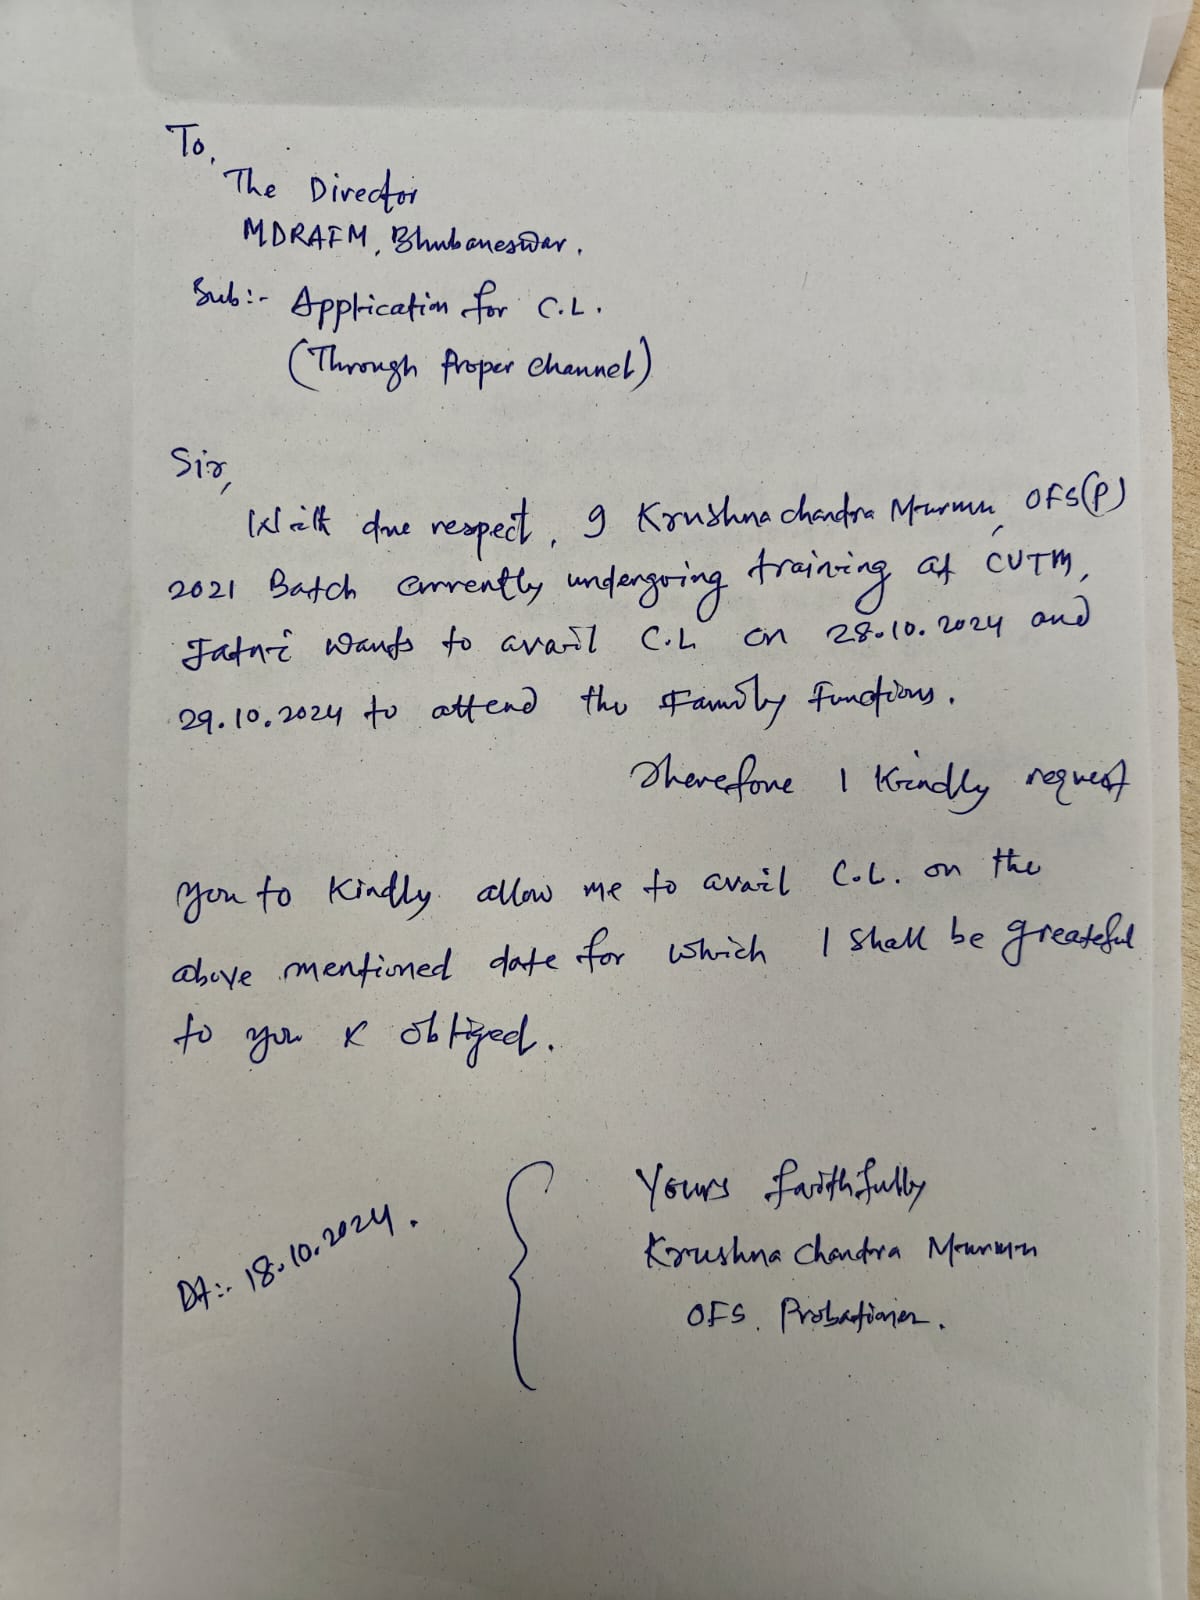 To,
The Director
MDRAFM, Bhubaneswar.
Sub:- Application for C.L.
(Through Proper Channel)
Sir,
With due respect, I Krushna chandra Murmu, OFS(P)
2021 Batch currently undergoing training at CUTM,
Jatni wants to avail C.L on 28.10.2024 and
29.10.2024 to attend the Family Functions.
Therefore I Kindly request
you to Kindly allow me to avail C.L. on the
above mentioned date for which I shall be greateful
to you & obliged.
Dt:- 18.10.2024.
Yours faithfully
Krushna Chandra Murmu
OFS. Probationer.